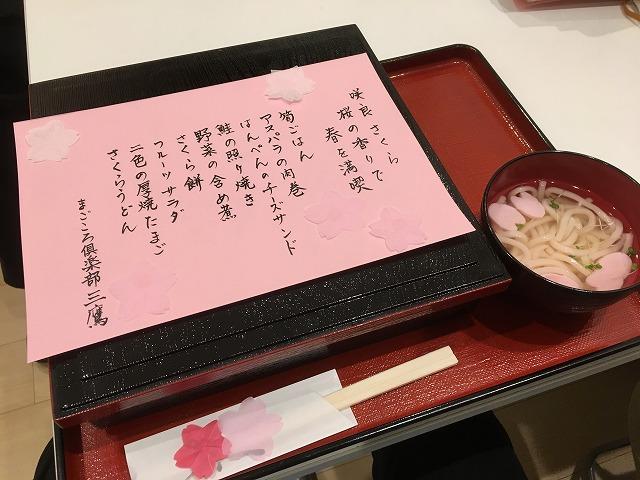 咲良さくら
桜の香りで
春を満喫
筍ごはん
アスパラの肉巻
はんぺんのチーズサンド
鮭の照り焼き
野菜の含め煮
さくら餅
フルーツサラダ
二色の厚焼たまご
さくらうどん
まごころ倶楽部 三鷹